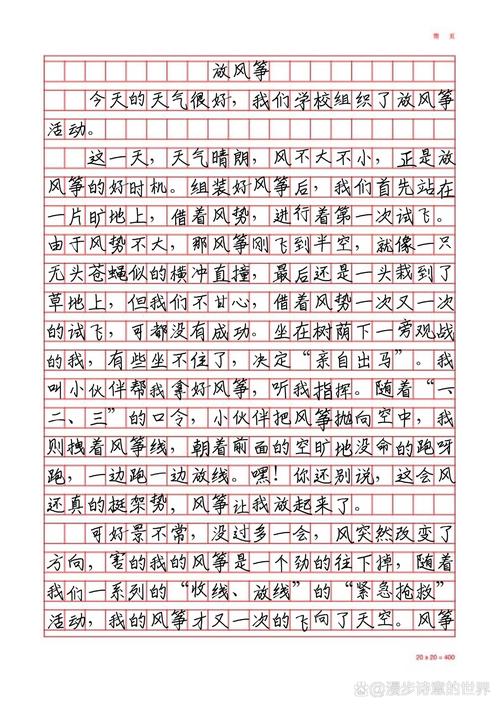 第 页
放风筝
今天的天气很好，我们学校组织了放风筝
活动。
这一天，天气晴朗，风不大不小，正是放
风筝的好时机。组装好风筝后，我们首先站在
一片旷地上，借着风势，进行着第一次试飞。
由于风势不大，那风筝刚飞到半空，就像一只
无头苍蝇似的横冲直撞，最后还是一头栽到了
草地上，但我们不甘心，借着风势一次又一次
的试飞，可都没有成功。坐在树荫下一旁观战
的我，有些坐不住了，决定“亲自出马”。我
叫小伙伴帮我拿好风筝，听我指挥。随着“一、
二、三”的口令，小伙伴把风筝抛向空中，我
则拽着风筝线，朝着前面的空旷地没命的跑呀
跑，一边跑一边放线。嘿！你还别说，这会风
还真的挺架势，风筝让我放起来了。
可好景不常，没过多一会，风突然改变了
方向，害的我的风筝是一个劲的往下掉，随着
我们一系列的“收线、放线”的“紧急抢救”
活动，我的风筝才又一次的飞向了天空。风筝
20 x 20 = 400
@漫步诗意的世界